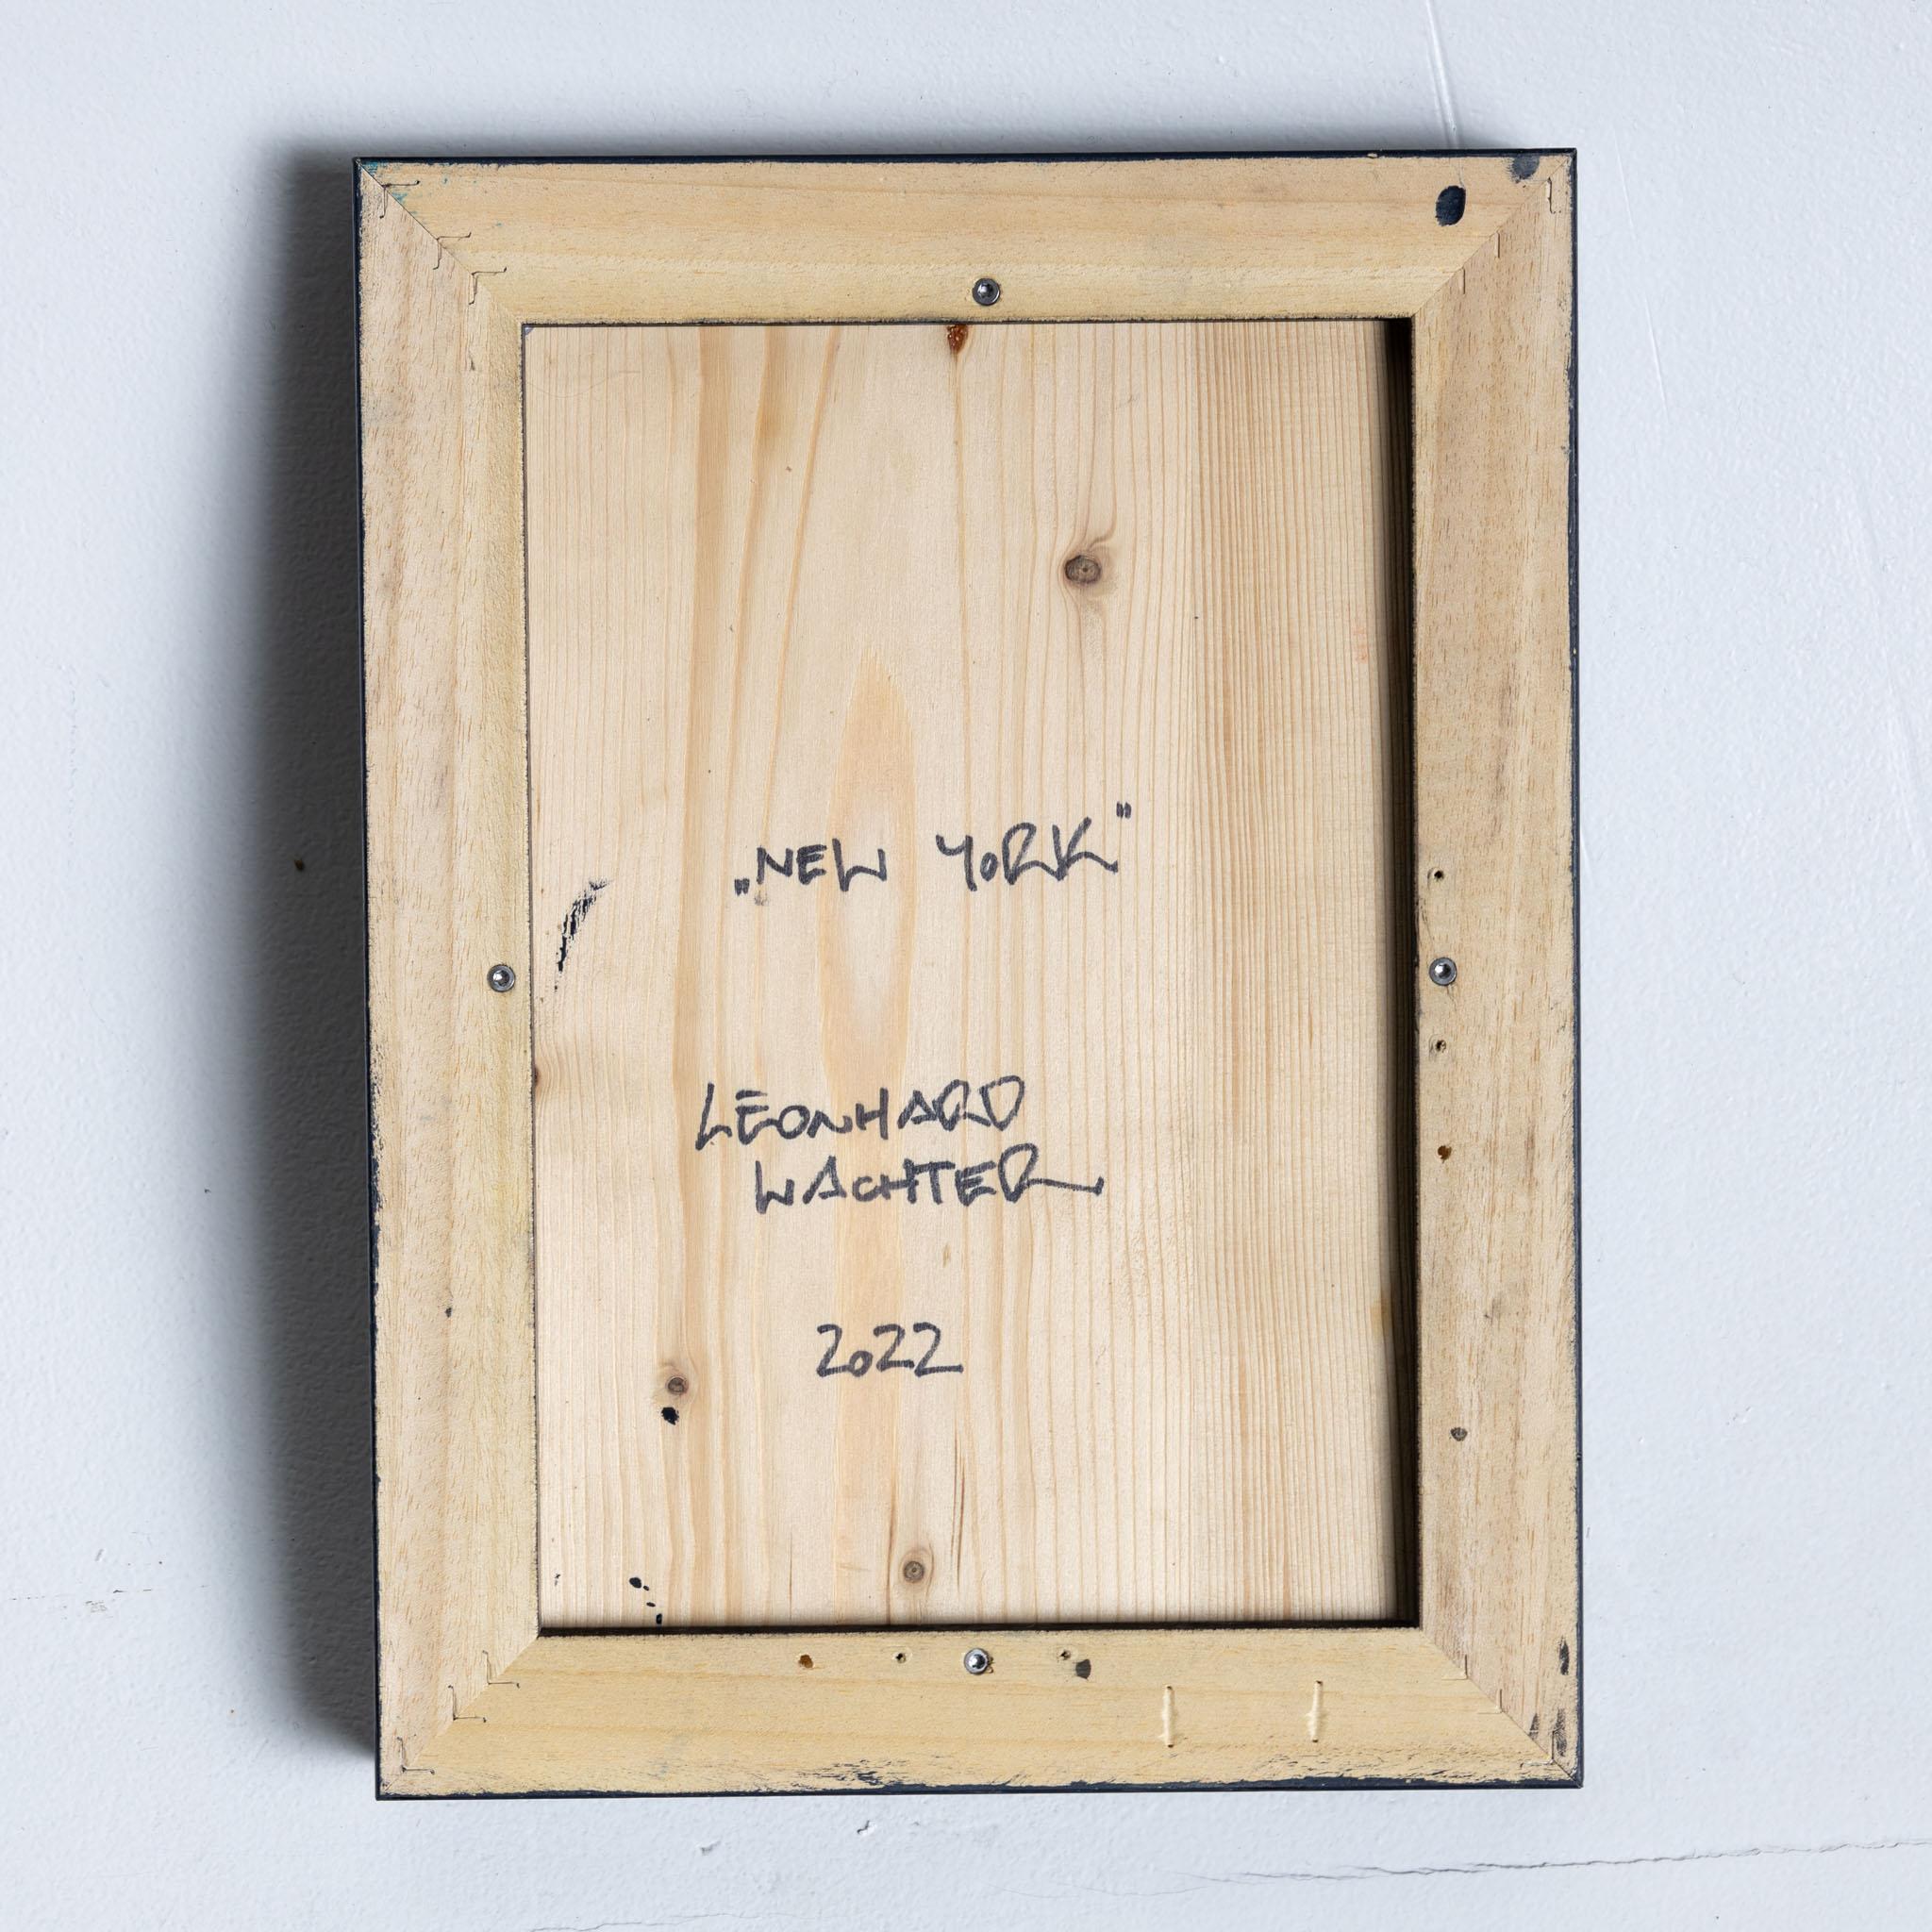 „NEW YORK"
LEONHARD
WACHTER
2022